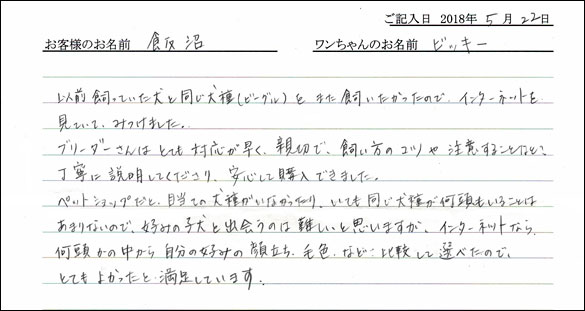 ご記入日 2018年 5月 22日
お客様のお名前 飯沼 ワンちゃんのお名前 ビッキー
以前飼っていた犬と同じ犬種(ビーグル)をまた飼いたかったので、インターネットを
見ていて、みつけました。
ブリーダーさんはとても対応が早く、親切で、飼い方のコツや注意することなど、
丁寧に説明してくださり、安心して購入できました。
ペットショップだと、目当ての犬種がいなかったり、いても同じ犬種が何頭もいることは
あまりないので、好みの子犬と出会うのは難しいと思いますが、インターネットなら、
何頭かの中から自分の好みの顔立ち、毛色、など…比較して選べたので、
とてもよかったと満足しています。